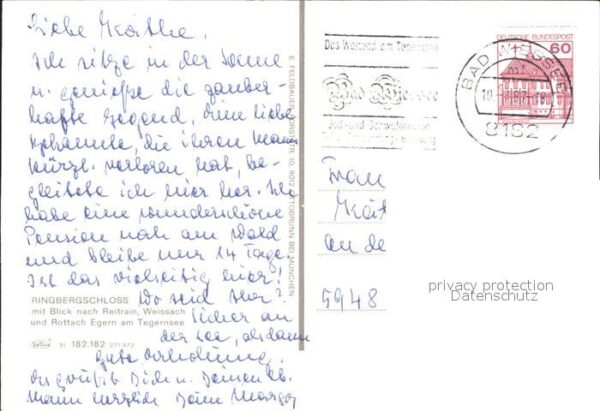 Liebe Käthe,
Ich sitze in der Sonne
u. genieße die zauber-
hafte Gegend, eine liebe
die ihren Mann
kürzl. verloren hat, be-
gleitete ich hier her. Ich
habe eine wunderschöne
Pension nah am Wald
und bleibe nur 14 Tage.
Ist das vielseitig hier!
Wo seid Ihr?
Sicher an
der See, alsdann
gute Erholung.
Es grüßt Dich u. Deinen lb.
Mann herzlich Deine Margot
RINGBERGSCHLOSS
mit Blick nach Reitrain, Weissach
und Rottach Egern am Tegernsee
31 182.182 271 972
E. FELDBAUER, FORSTSTR. 10, 8012 OTTOBRUNN BEI MÜNCHEN
Das Weltbad am Tegernsee
Bad Wiessee
Jod- und Schwefelquellen
DEUTSCHE BUNDESPOST
60
BAD WIESSEE
8182
Frau
Kät
an de
5948
privacy protection
Datenschutz